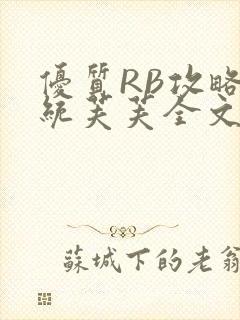 優質RB攻略
統芙芙全文
蘇城下的老翁